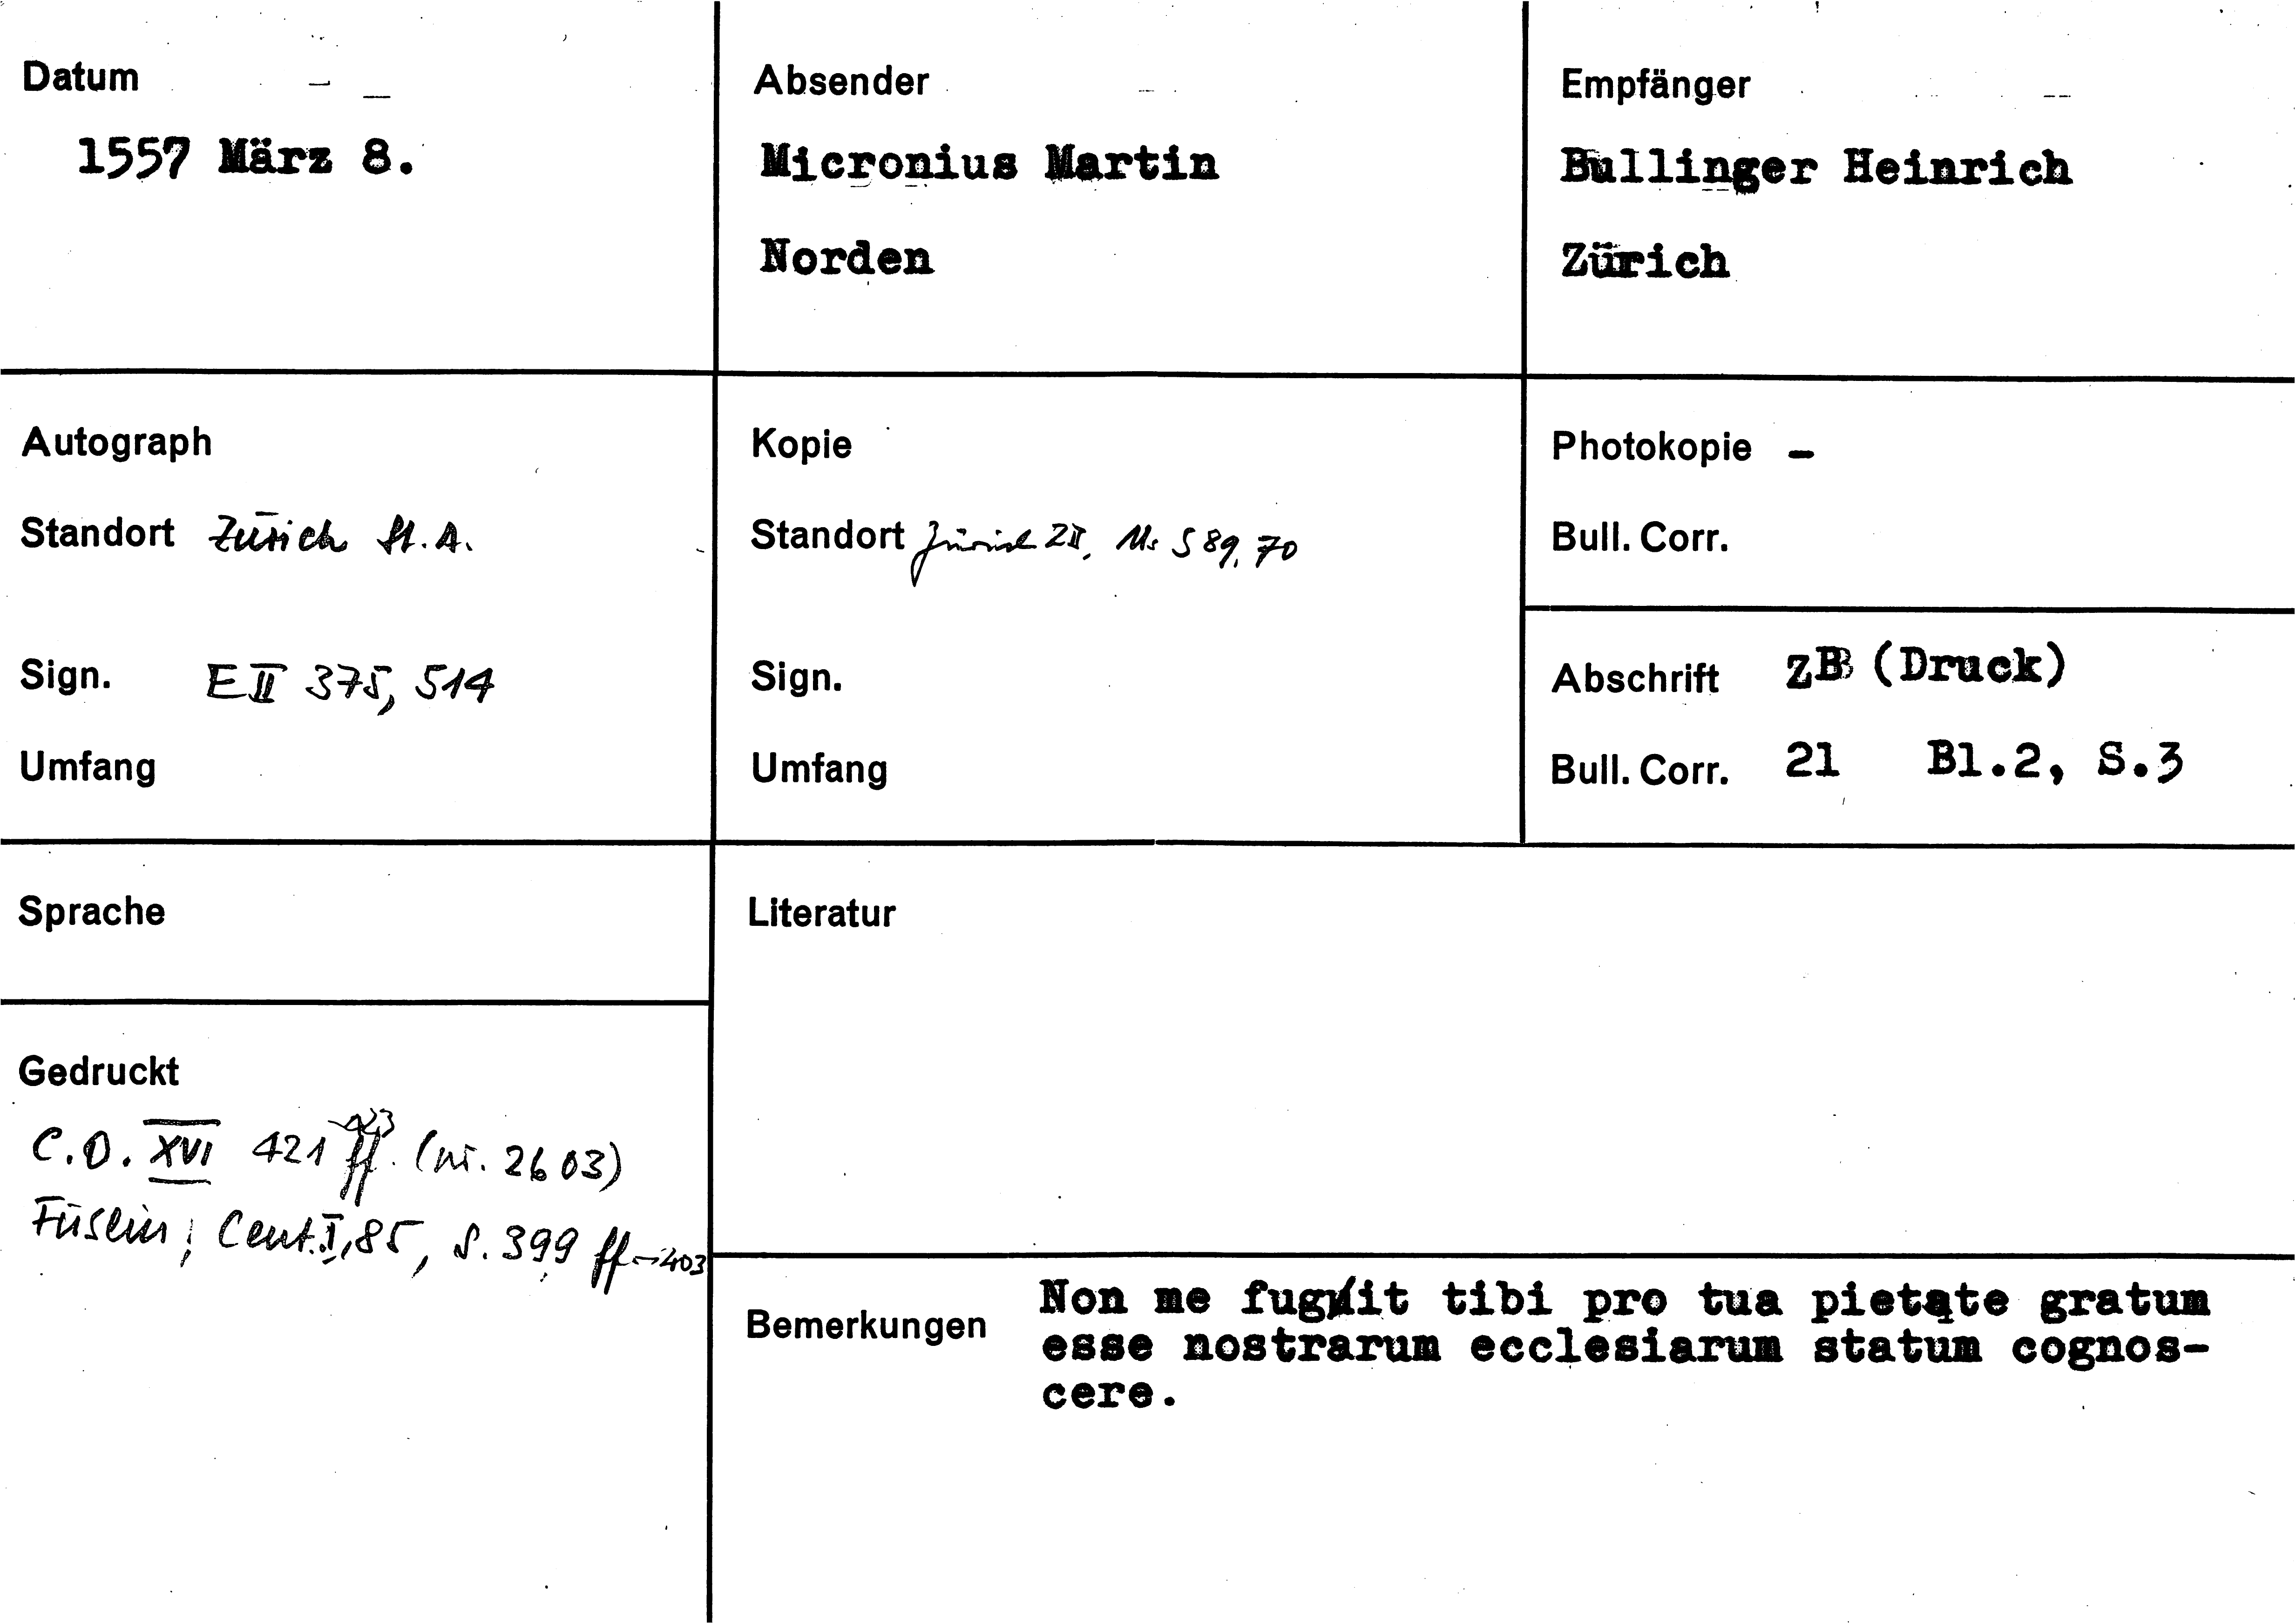 Datum
1557 März 8.
Absender
Micronius Martin
Norden
Empfänger
Bullinger Heinrich
Zürich
Autograph
Standort Zürich St.A.
Sign. E II 375, 514
Umfang
Kopie
Standort Zürich ZB, Ms S 89, 70
Sign.
Umfang
Photokopie -
Bull. Corr.
Abschrift ZB (Druck)
Bull. Corr. 21 Bl.2, S.3
Sprache
Gedruckt
C.O. XVI 421 ff. (nr. 2603)
Füslin, Cent. I, 85, S. 399 ff - 403
Literatur
Bemerkungen
Non me fugit tibi pro tua pietate gratum
esse nostrarum ecclesiarum statum cognos-
cere.